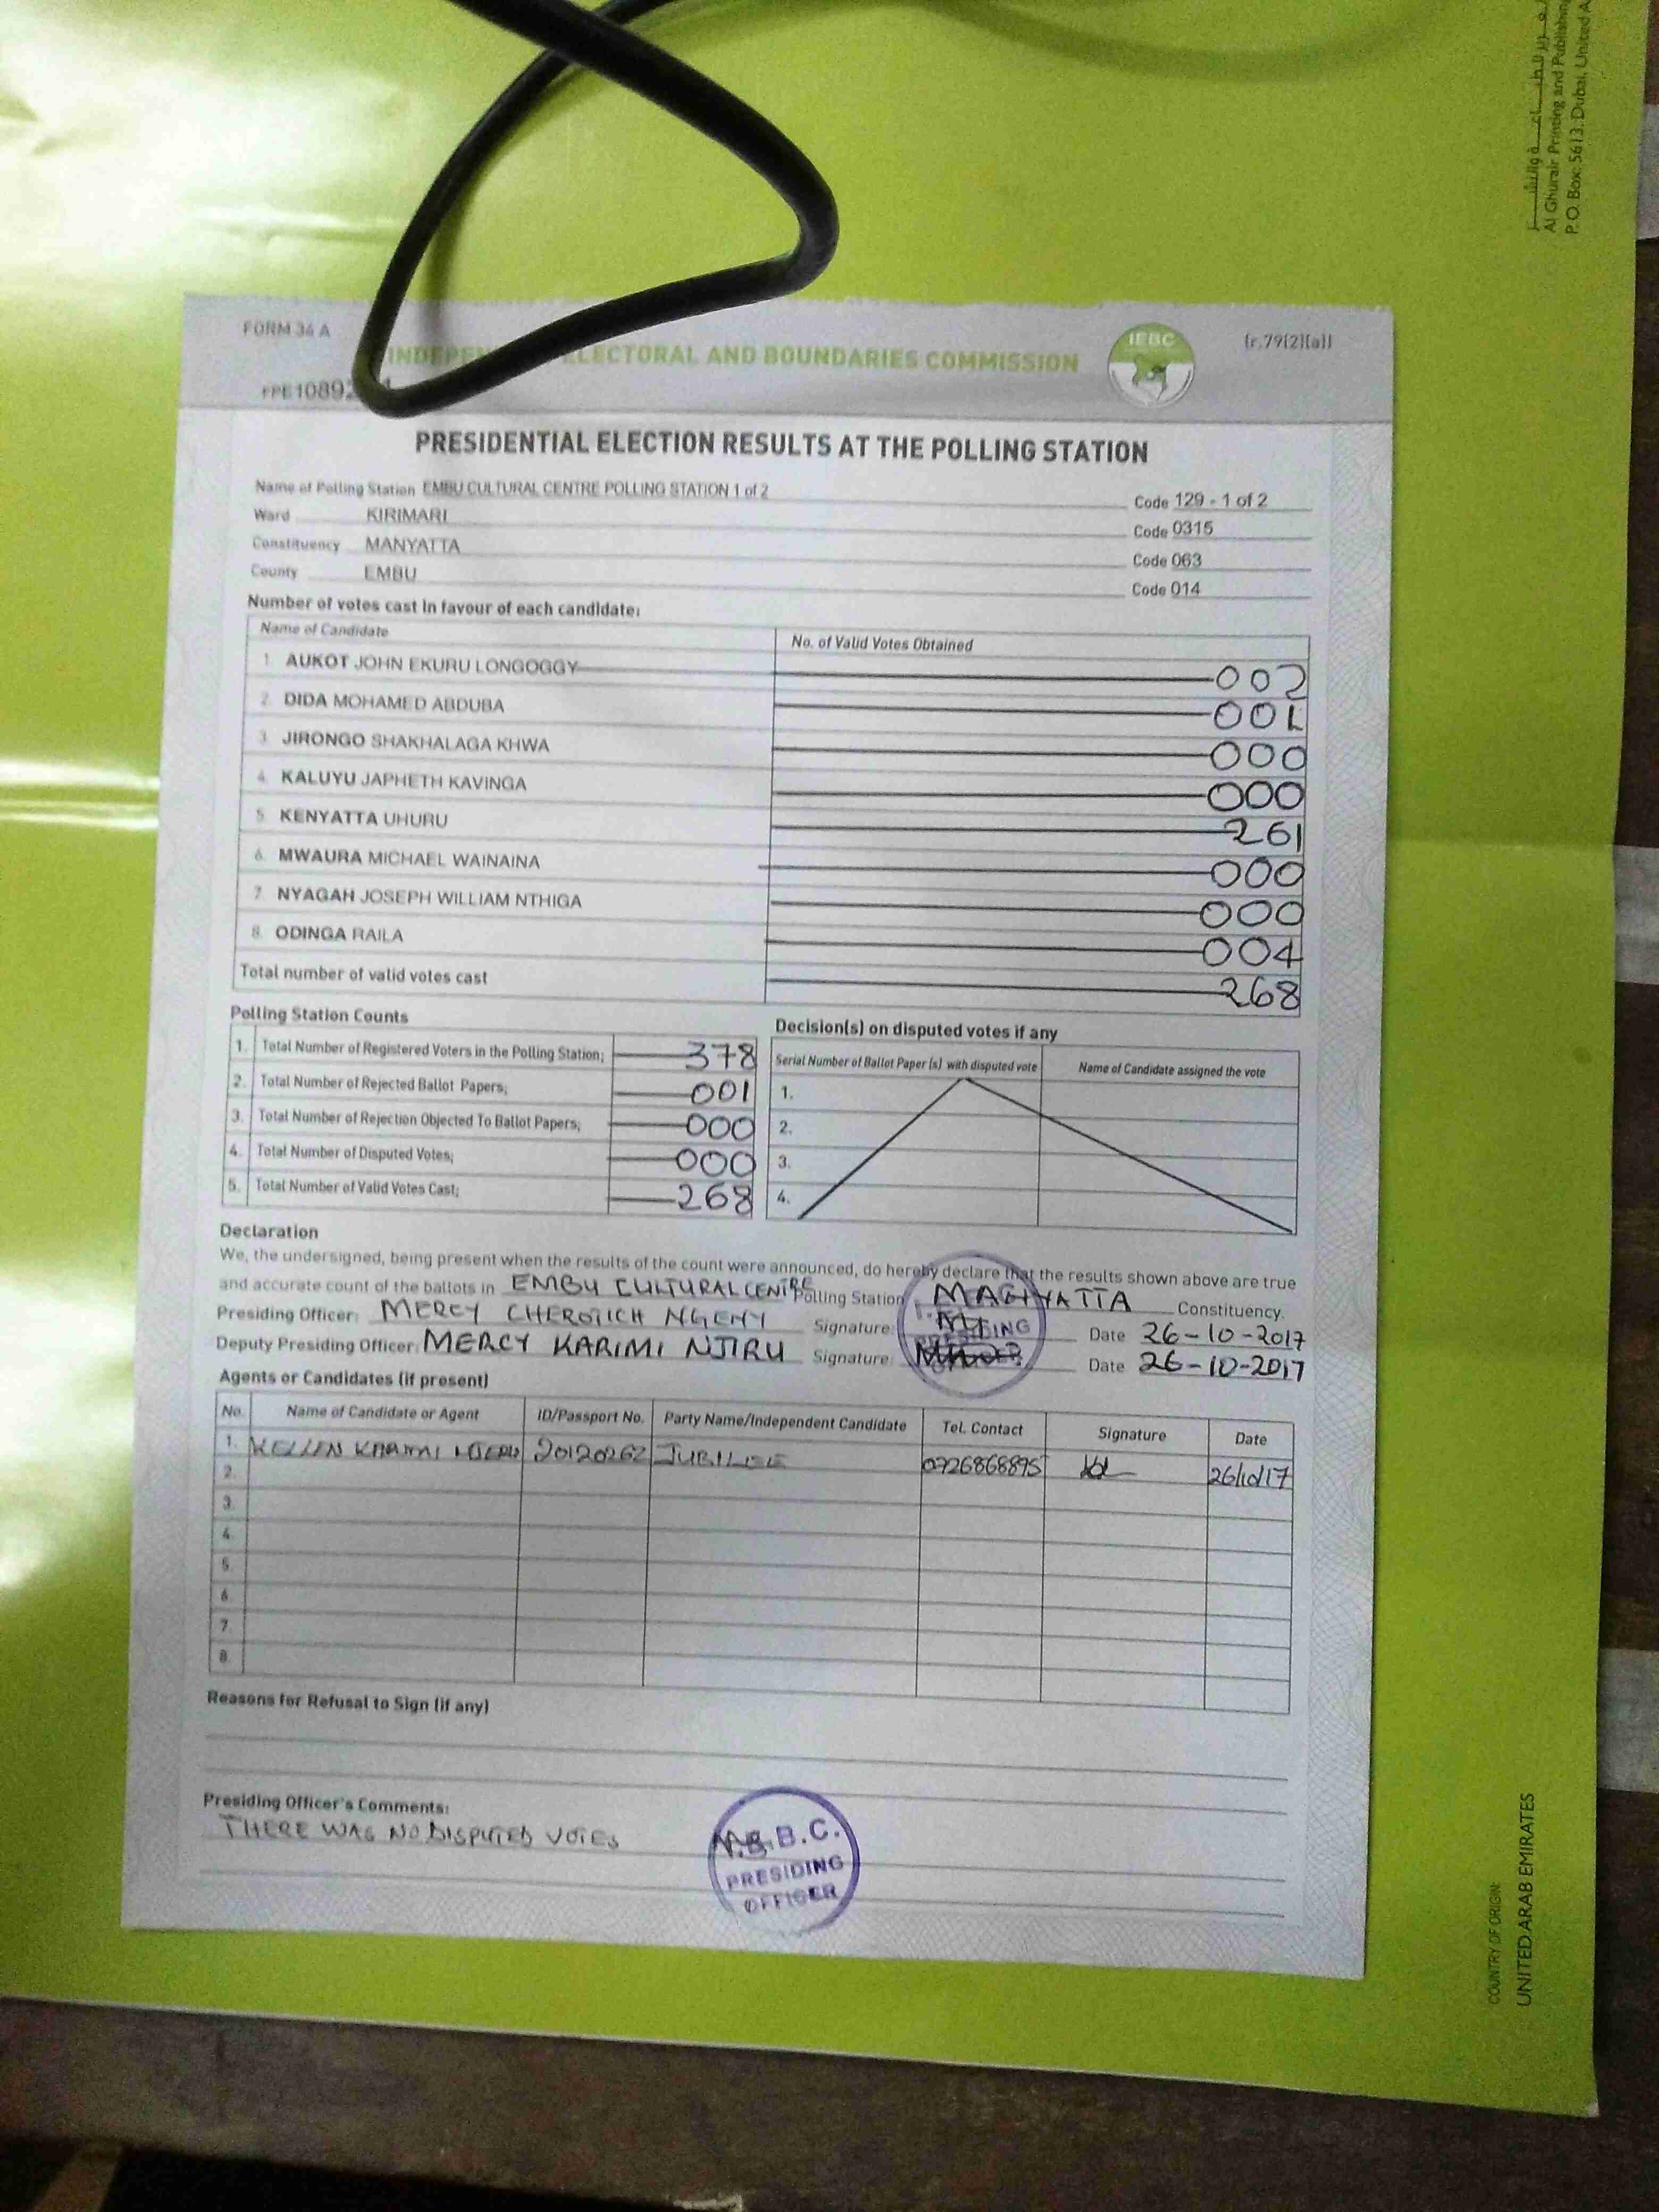 طباعة والنشر
Al Ghurair Printing and Publishing
P.O. Box: 5613, Dubai, United A
FORM 34 A
(r.79(2)(a))
ELECTORAL AND BOUNDARIES COMMISSION
IEBC
PRESIDENTIAL ELECTION RESULTS AT THE POLLING STATION
Name of Polling Station EMBU CULTURAL CENTRE POLLING STATION 1 of 2 Code 129 - 1 of 2
Ward KIRIMARI Code 0315
Constituency MANYATTA Code 063
County EMBU Code 014
Number of votes cast in favour of each candidate:
Name of Candidate No. of Valid Votes Obtained
1. AUKOT JOHN EKURU LONGOGGY 002
2. DIDA MOHAMED ABDUBA 001
3. JIRONGO SHAKHALAGA KHWA 000
4. KALUYU JAPHETH KAVINGA 000
5. KENYATTA UHURU 261
6. MWAURA MICHAEL WAINAINA 000
7. NYAGAH JOSEPH WILLIAM NTHIGA 000
8. ODINGA RAILA 004
Total number of valid votes cast 268
Polling Station Counts
1. Total Number of Registered Voters in the Polling Station; 378
2. Total Number of Rejected Ballot Papers; 001
3. Total Number of Rejection Objected To Ballot Papers; 000
4. Total Number of Disputed Votes; 000
5. Total Number of Valid Votes Cast; 268
Decision(s) on disputed votes if any
Serial Number of Ballot Paper (s) with disputed vote Name of Candidate assigned the vote
1.
2.
3.
4.
Declaration
We, the undersigned, being present when the results of the count were announced, do hereby declare that the results shown above are true
and accurate count of the ballots in EMBU CULTURAL CENTRE Polling Station MAGHYATTA Constituency.
Presiding Officer: MERCY CHEROTICH NGENY Signature: Date 26-10-2017
Deputy Presiding Officer: MERCY KARIMI NJIRU Signature: Date 26-10-2017
Agents or Candidates (if present)
No. Name of Candidate or Agent ID/Passport No. Party Name/Independent Candidate Tel. Contact Signature Date
1. KELLEN KARIMI 20120262 JUBILEE 0726868895 26/10/17
2.
3.
4.
5.
6.
7.
8.
Reasons for Refusal to Sign (if any)
Presiding Officer's Comments:
THERE WAS NO DISPUTED VOTES
B.C.
PRESIDING
OFFICER
COUNTRY OF ORIGIN:
UNITED ARAB EMIRATES